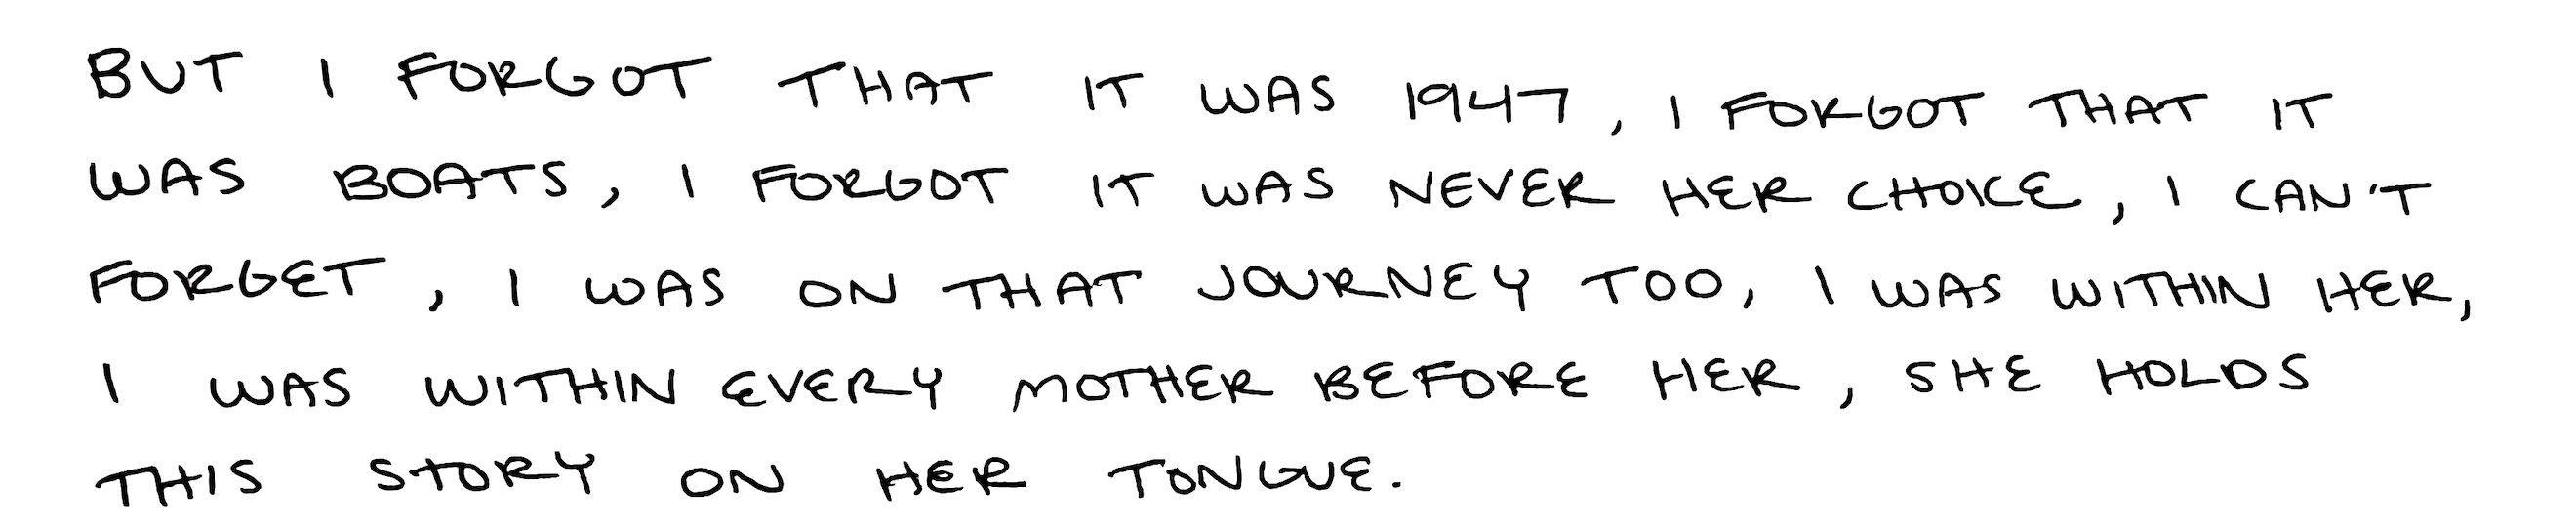 BUT I FORGOT THAT IT WAS 1947, I FORGOT THAT IT
WAS BOATS, I FORGOT IT WAS NEVER HER CHOICE, I CAN'T
FORGET, I WAS ON THAT JOURNEY TOO, I WAS WITHIN HER,
I WAS WITHIN EVERY MOTHER BEFORE HER, SHE HOLDS
THIS STORY ON HER TONGUE.